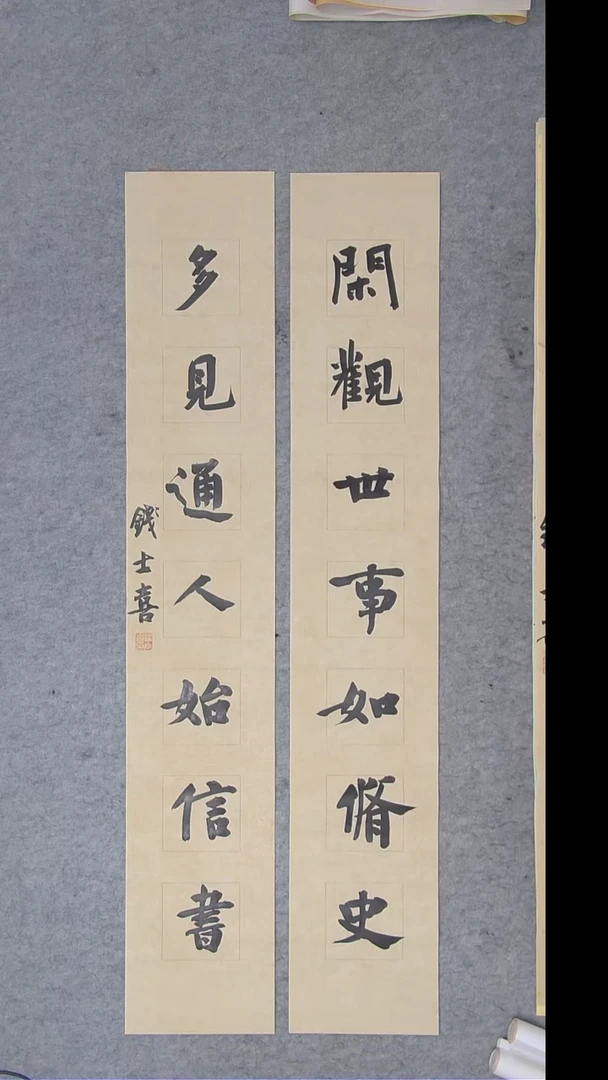 閑觀世事如脩史
多見通人始信書
錢士喜